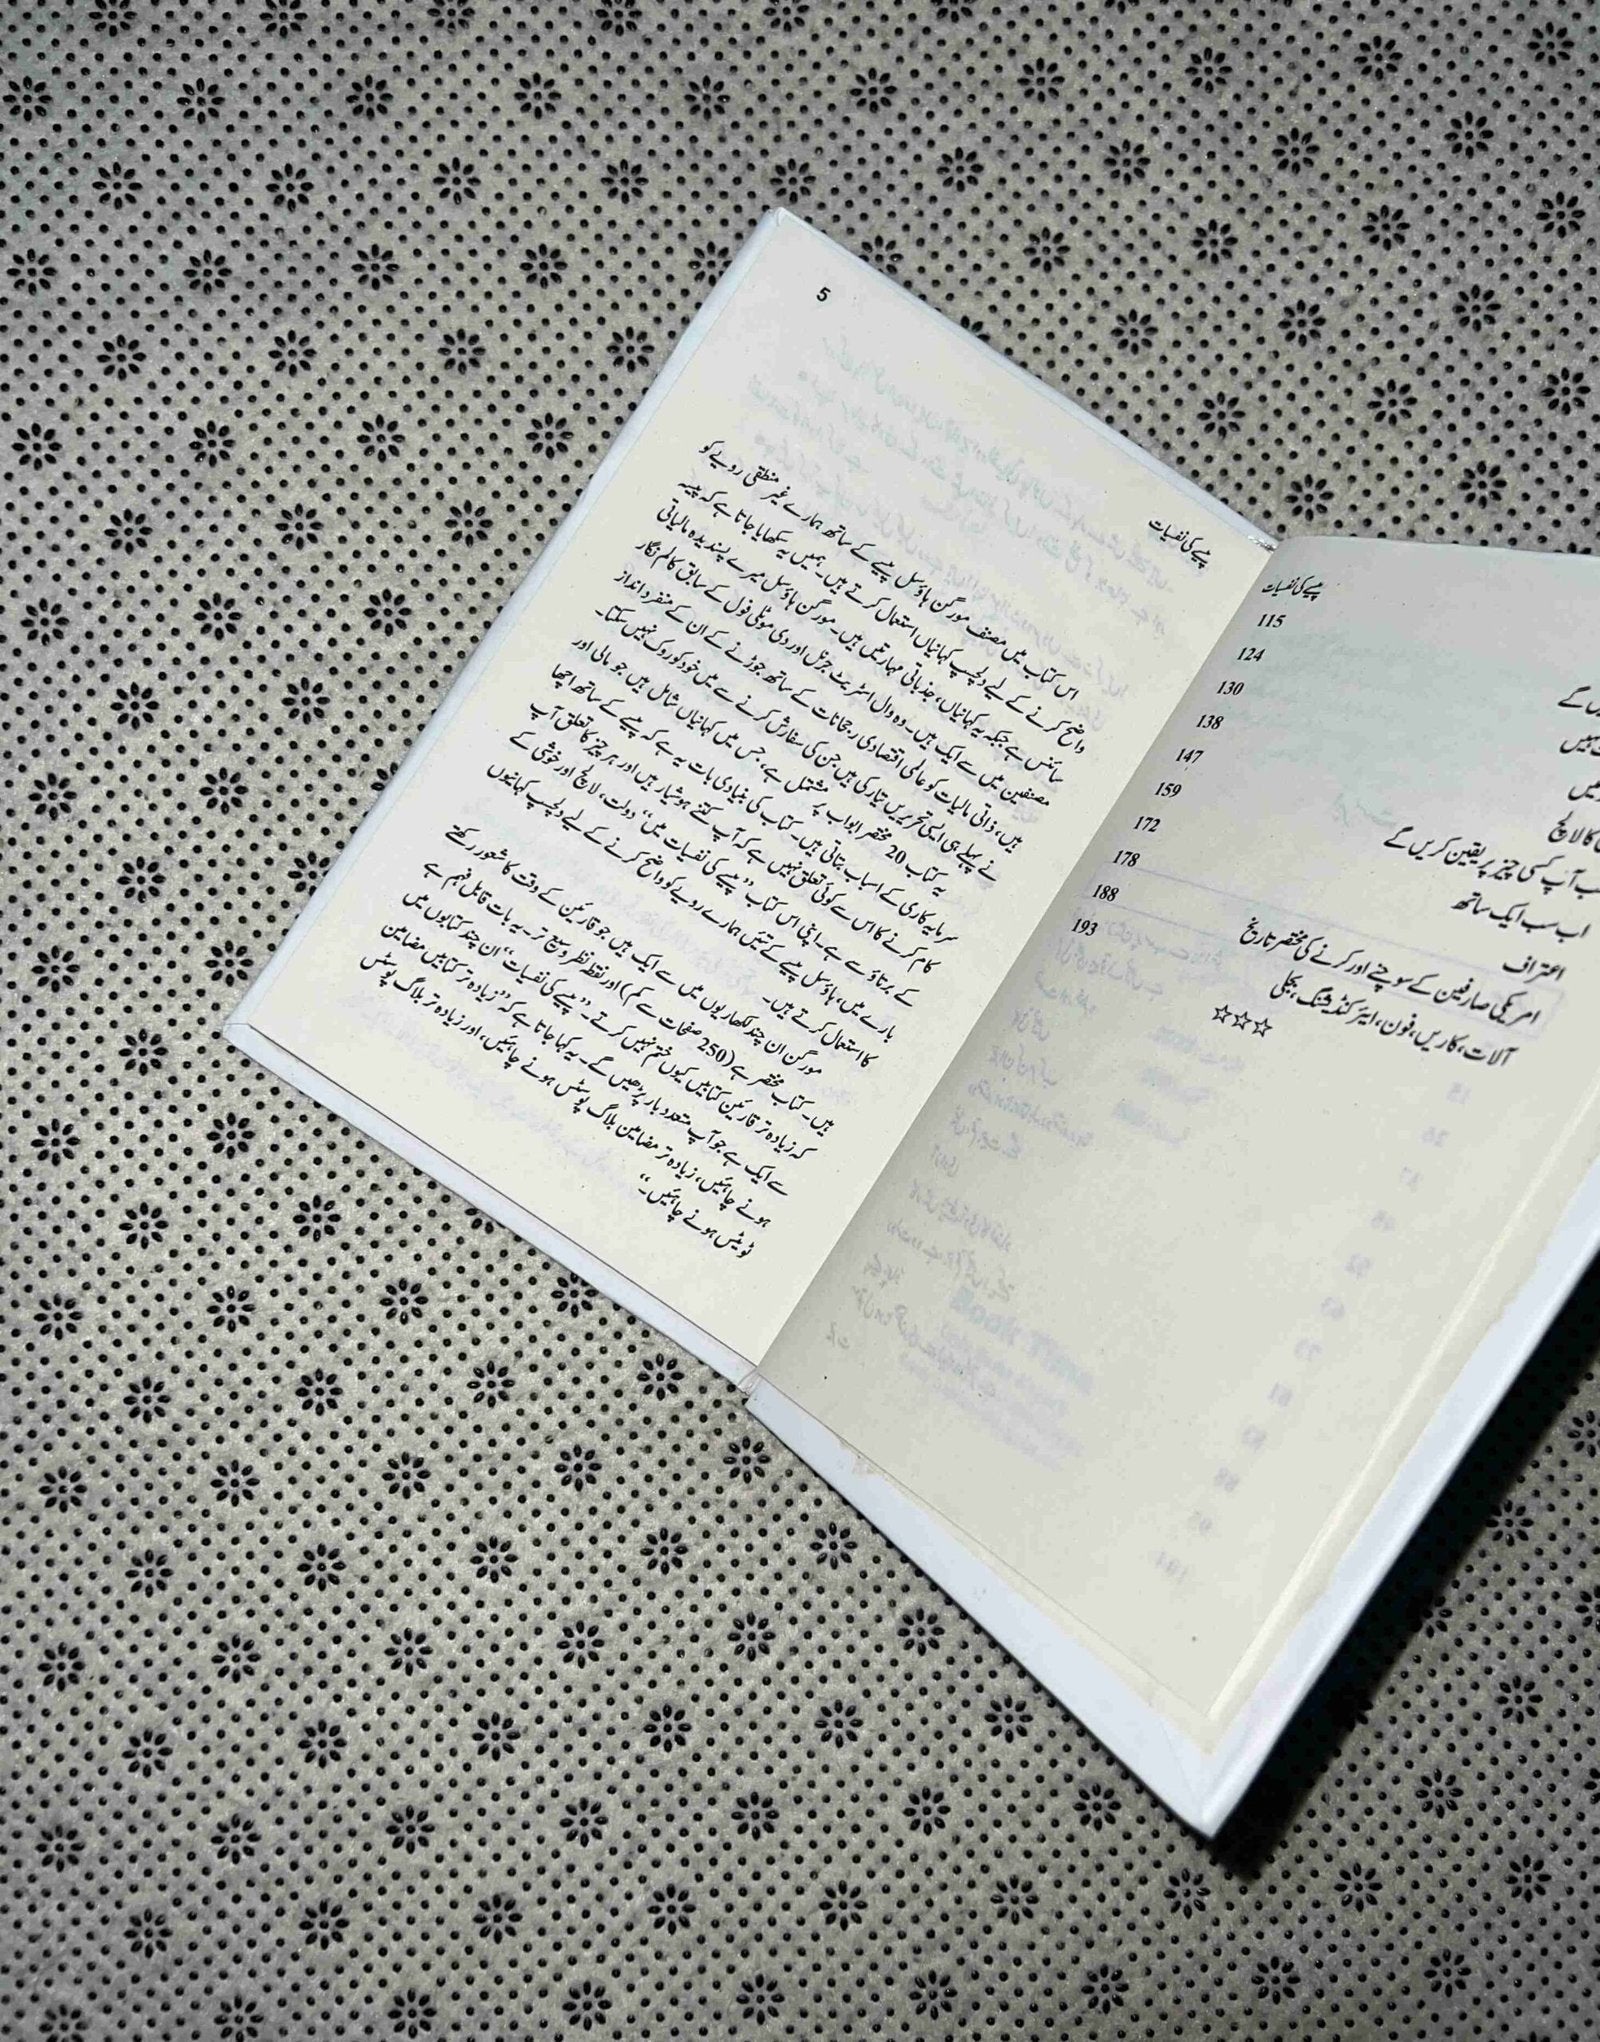 پیسے کی نفسیات
115
124
130
138
147
159
172
178
188
193
کا لالچ
آپ کسی چیز پر یقین کریں گے
اب سب ایک ساتھ
اعتراف
امریکی صارفین کے سوچنے اور کرنے کی مختصر تاریخ
آلات، کاریں، فون، ایئر کنڈیشنگ، بجلی
☆☆☆
پیسے کی نفسیات
5
اس کتاب میں مصنف مورگن ہاؤسل پیسے کے ساتھ ہمارے غیر منطقی رویے کو
واضح کرنے کے لیے دلچسپ کہانیاں استعمال کرتے ہیں۔ ہمیں یہ سکھایا جاتا ہے کہ پیسہ
سائنس ہے جبکہ یہ کہانیاں، جذباتی مہارتیں ہیں۔ مورگن ہاؤسل میرے پسندیدہ مالیاتی
مصنفین میں سے ایک ہیں۔ وہ وال اسٹریٹ جرنل اور دی موٹلی فول کے سابق کالم نگار
ہیں، ذاتی مالیات کو عالمی اقتصادی رجحانات کے ساتھ جوڑنے کے ان کے منفرد انداز
نے پہلے ہی ایسی تحریریں تیار کی ہیں جن کی سفارش کرنے سے میں خود کو روک نہیں سکتا۔
یہ کتاب 20 مختصر ابواب پر مشتمل ہے، جس میں کہانیاں شامل ہیں جو مالی اور
سرمایہ کاری کے اسباب بتاتی ہیں۔ کتاب کی بنیادی بات یہ ہے کہ پیسے کے ساتھ اچھا
کام کرنے کا اس سے کوئی تعلق نہیں ہے کہ آپ کتنے ہوشیار ہیں اور ہر چیز کا تعلق آپ
کے برتاؤ سے ہے۔ اپنی اس کتاب ”پیسے کی نفسیات میں“ دولت، لالچ اور خوشی کے
بارے میں، ہاؤسل پیسے کے تئیں ہمارے رویے کو واضح کرنے کے لیے دلچسپ کہانیوں
کا استعمال کرتے ہیں۔
مورگن ان چند لکھاریوں میں سے ایک ہیں جو قارئین کے وقت کا شعور رکھتے
ہیں۔ کتاب مختصر ہے (250 صفحات سے کم) اور نقطہ نظر وسیع تر۔ یہ بات قابل فہم ہے
کہ زیادہ تر قارئین کتابیں کیوں ختم نہیں کرتے۔ ”پیسے کی نفسیات“ ان چند کتابوں میں
سے ایک ہے جو آپ متعدد بار پڑھیں گے۔ یہ کہا جاتا ہے کہ ”زیادہ تر کتابیں مضامین
ہونے چاہئیں، زیادہ تر مضامین بلاگ پوسٹس ہونے چاہئیں، اور زیادہ تر بلاگ پوسٹس
ٹویٹس ہونے چاہئیں۔“